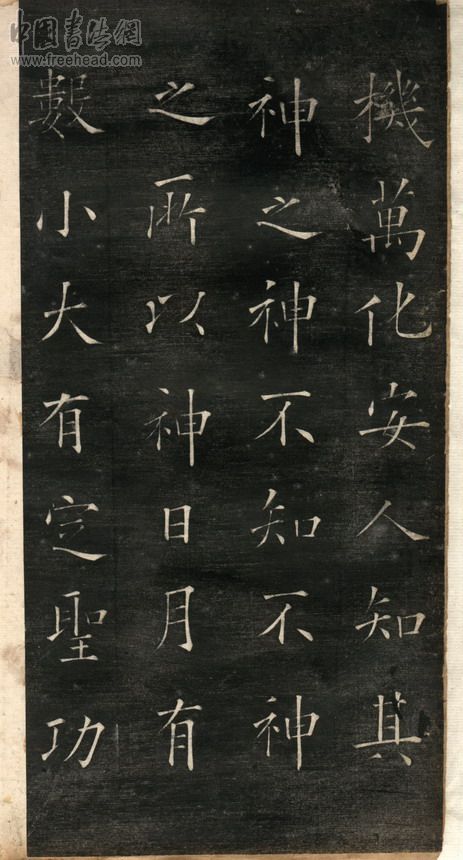 中國書法網
www.freehead.com
機萬化安人知其
神之神不知不神
之所以神日月有
數小大有定聖功